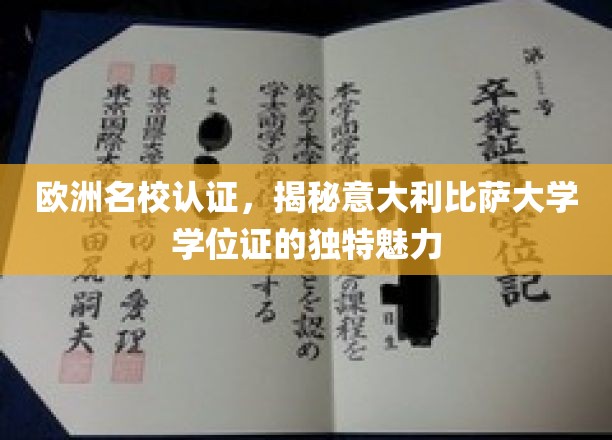 欧洲名校认证，揭秘意大利比萨大学
学位证的独特魅力
第 号
卒業証 学位記
本学商学部 定の課程を
日生
修めて本学 とを認め
学士(商学)の学 する
平成
東京国際大学 田村慶理
東京国際大学 長田尻嗣夫